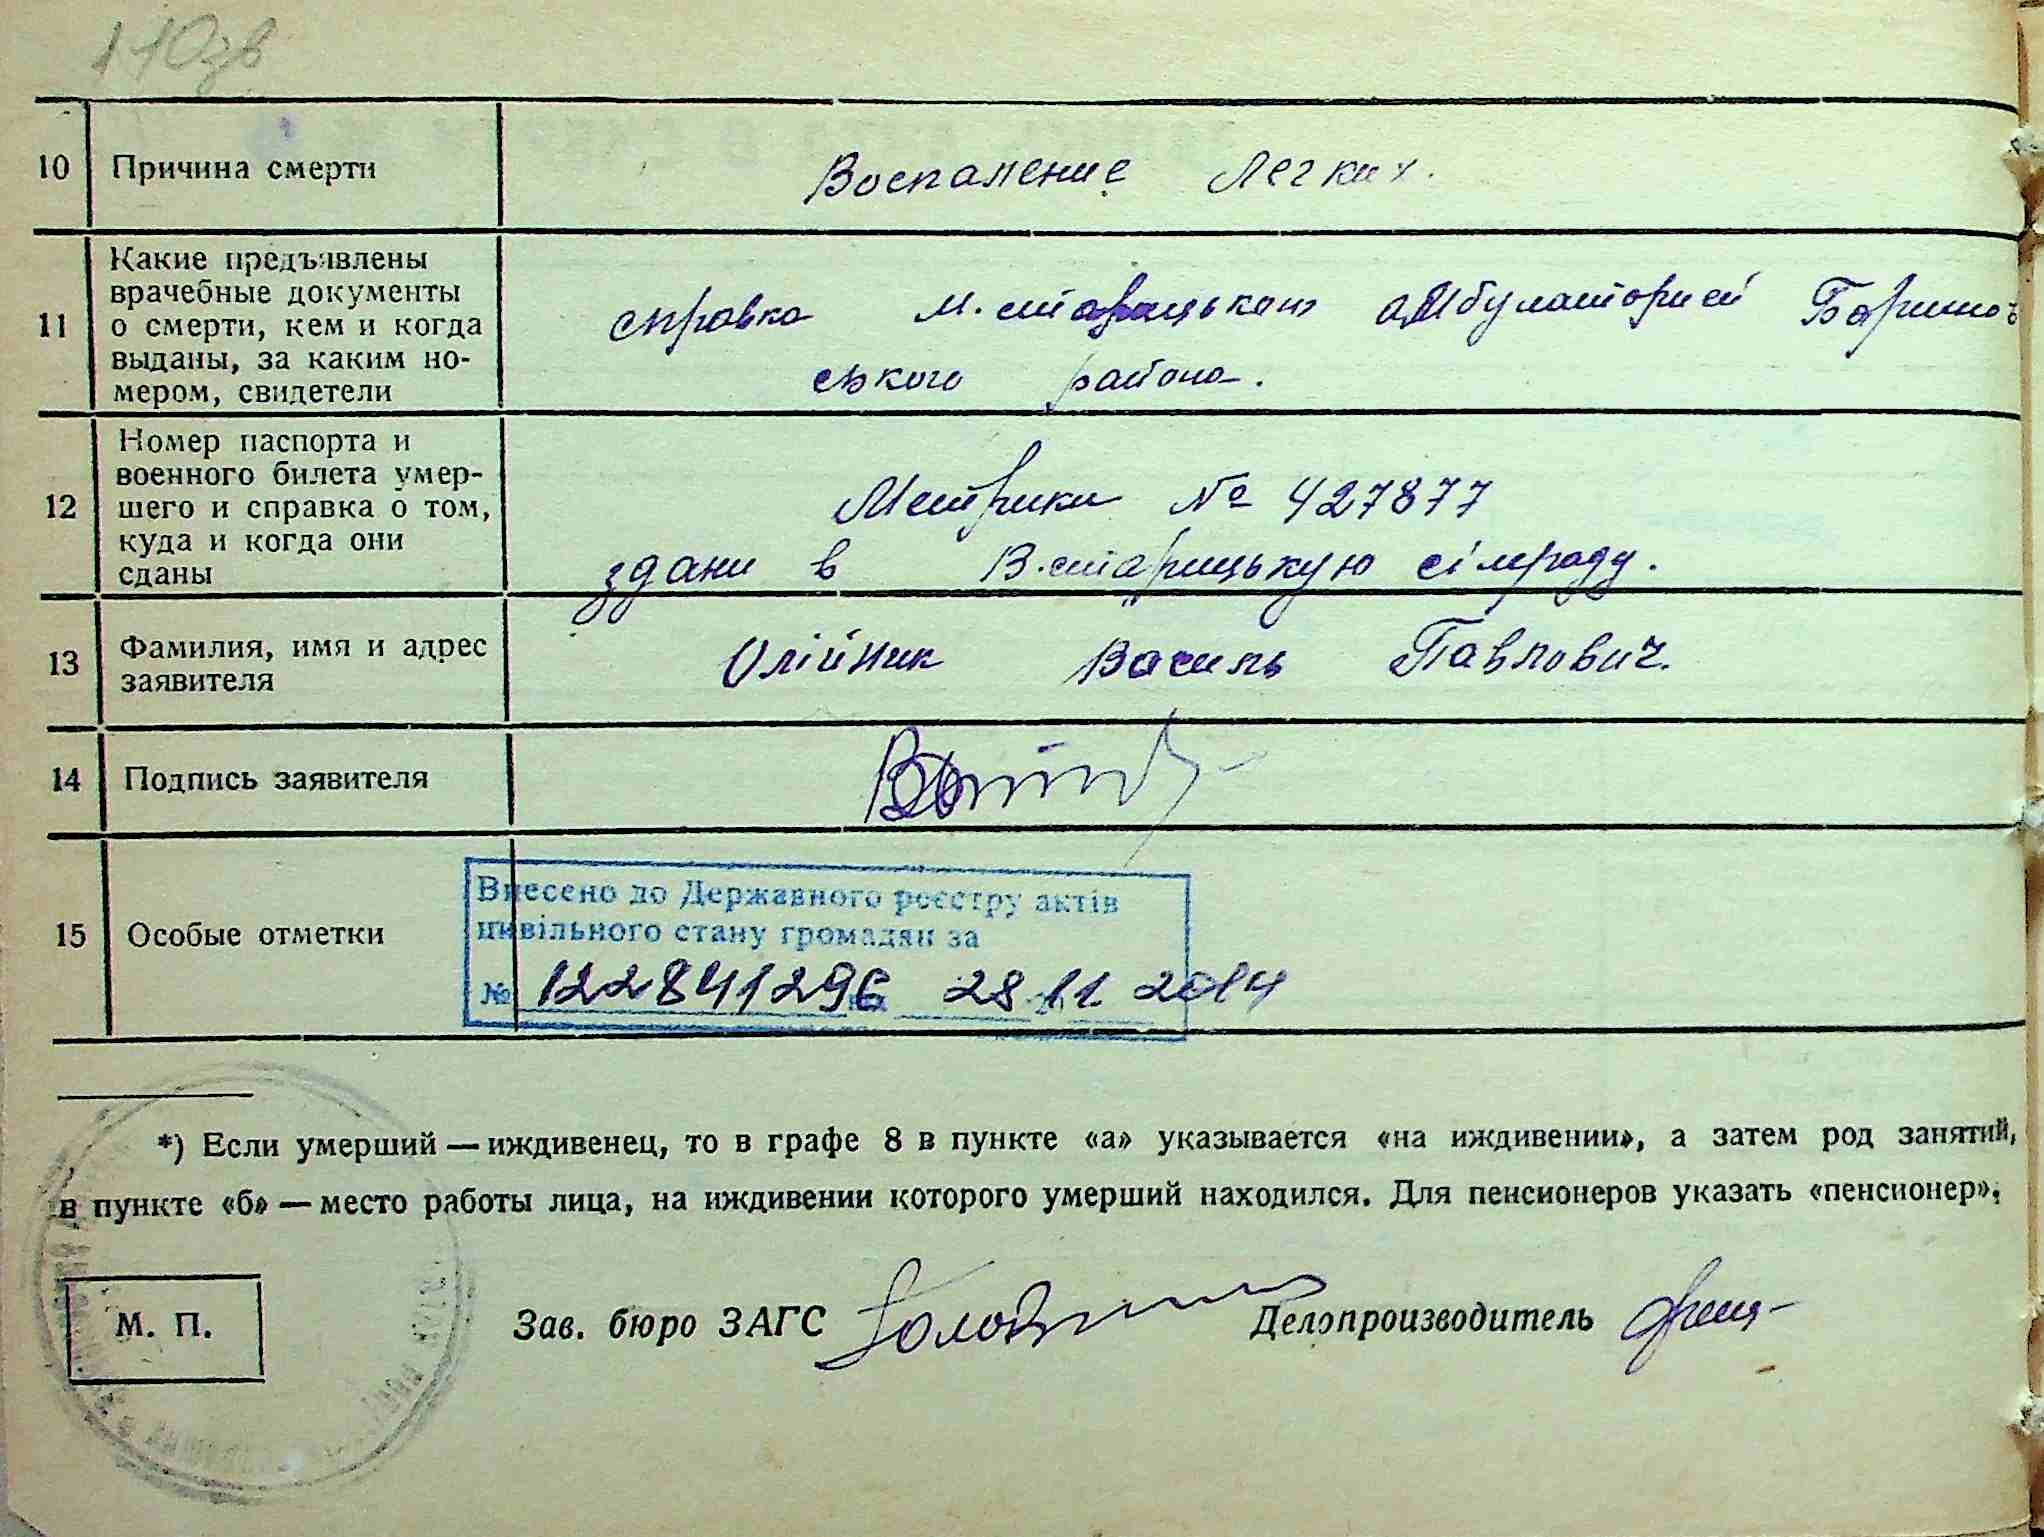 110зв
10 Причина смерти Воспаление Легких.
11 Какие предъявлены
врачебные документы
о смерти, кем и когда
выданы, за каким но-
мером, свидетели
справка М.старицькою амбулаторией
ського района.
12 Номер паспорта и
военного билета умер-
шего и справка о том,
куда и когда они
сданы
Метрики № 427877
здани в В.старицькую сілраду.
13 Фамилия, имя и адрес
заявителя
Олійник Василь Павлович.
14 Подпись заявителя
15 Особые отметки
Внесено до Державного реєстру актів
цивільного стану громадян за
№ 122841296 28.11.2014
*) Если умерший — иждивенец, то в графе 8 в пункте «а» указывается «на иждивении», а затем род занятий,
в пункте «б» — место работы лица, на иждивении которого умерший находился. Для пенсионеров указать «пенсионер».
М. П.
Зав. бюро ЗАГС Делопроизводитель